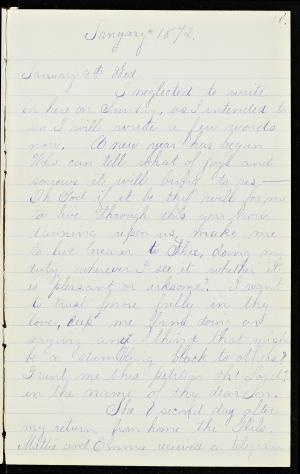 January 1872.
January 9th Wed
I neglected to write
in here on Sunday, as I intended to
so I will write a few words
now. A new year has begun
Who can tell what of joys and
sorrows it will bring to us.—
Oh God if it be thy will for me
to live through this year now
dawning upon us, make me
to live nearer to Thee, doing my
duty wherever I see it whether it
is pleasant or irksome. I want
to trust more fully in thy
love, keep me from doing or
saying any thing that might
be a stumbling block to others?
Grant me this petition Oh! Lord?
in the name of thy dear Son.
The second day after
my return from home the Girls
Mattie and Emma received a telegram